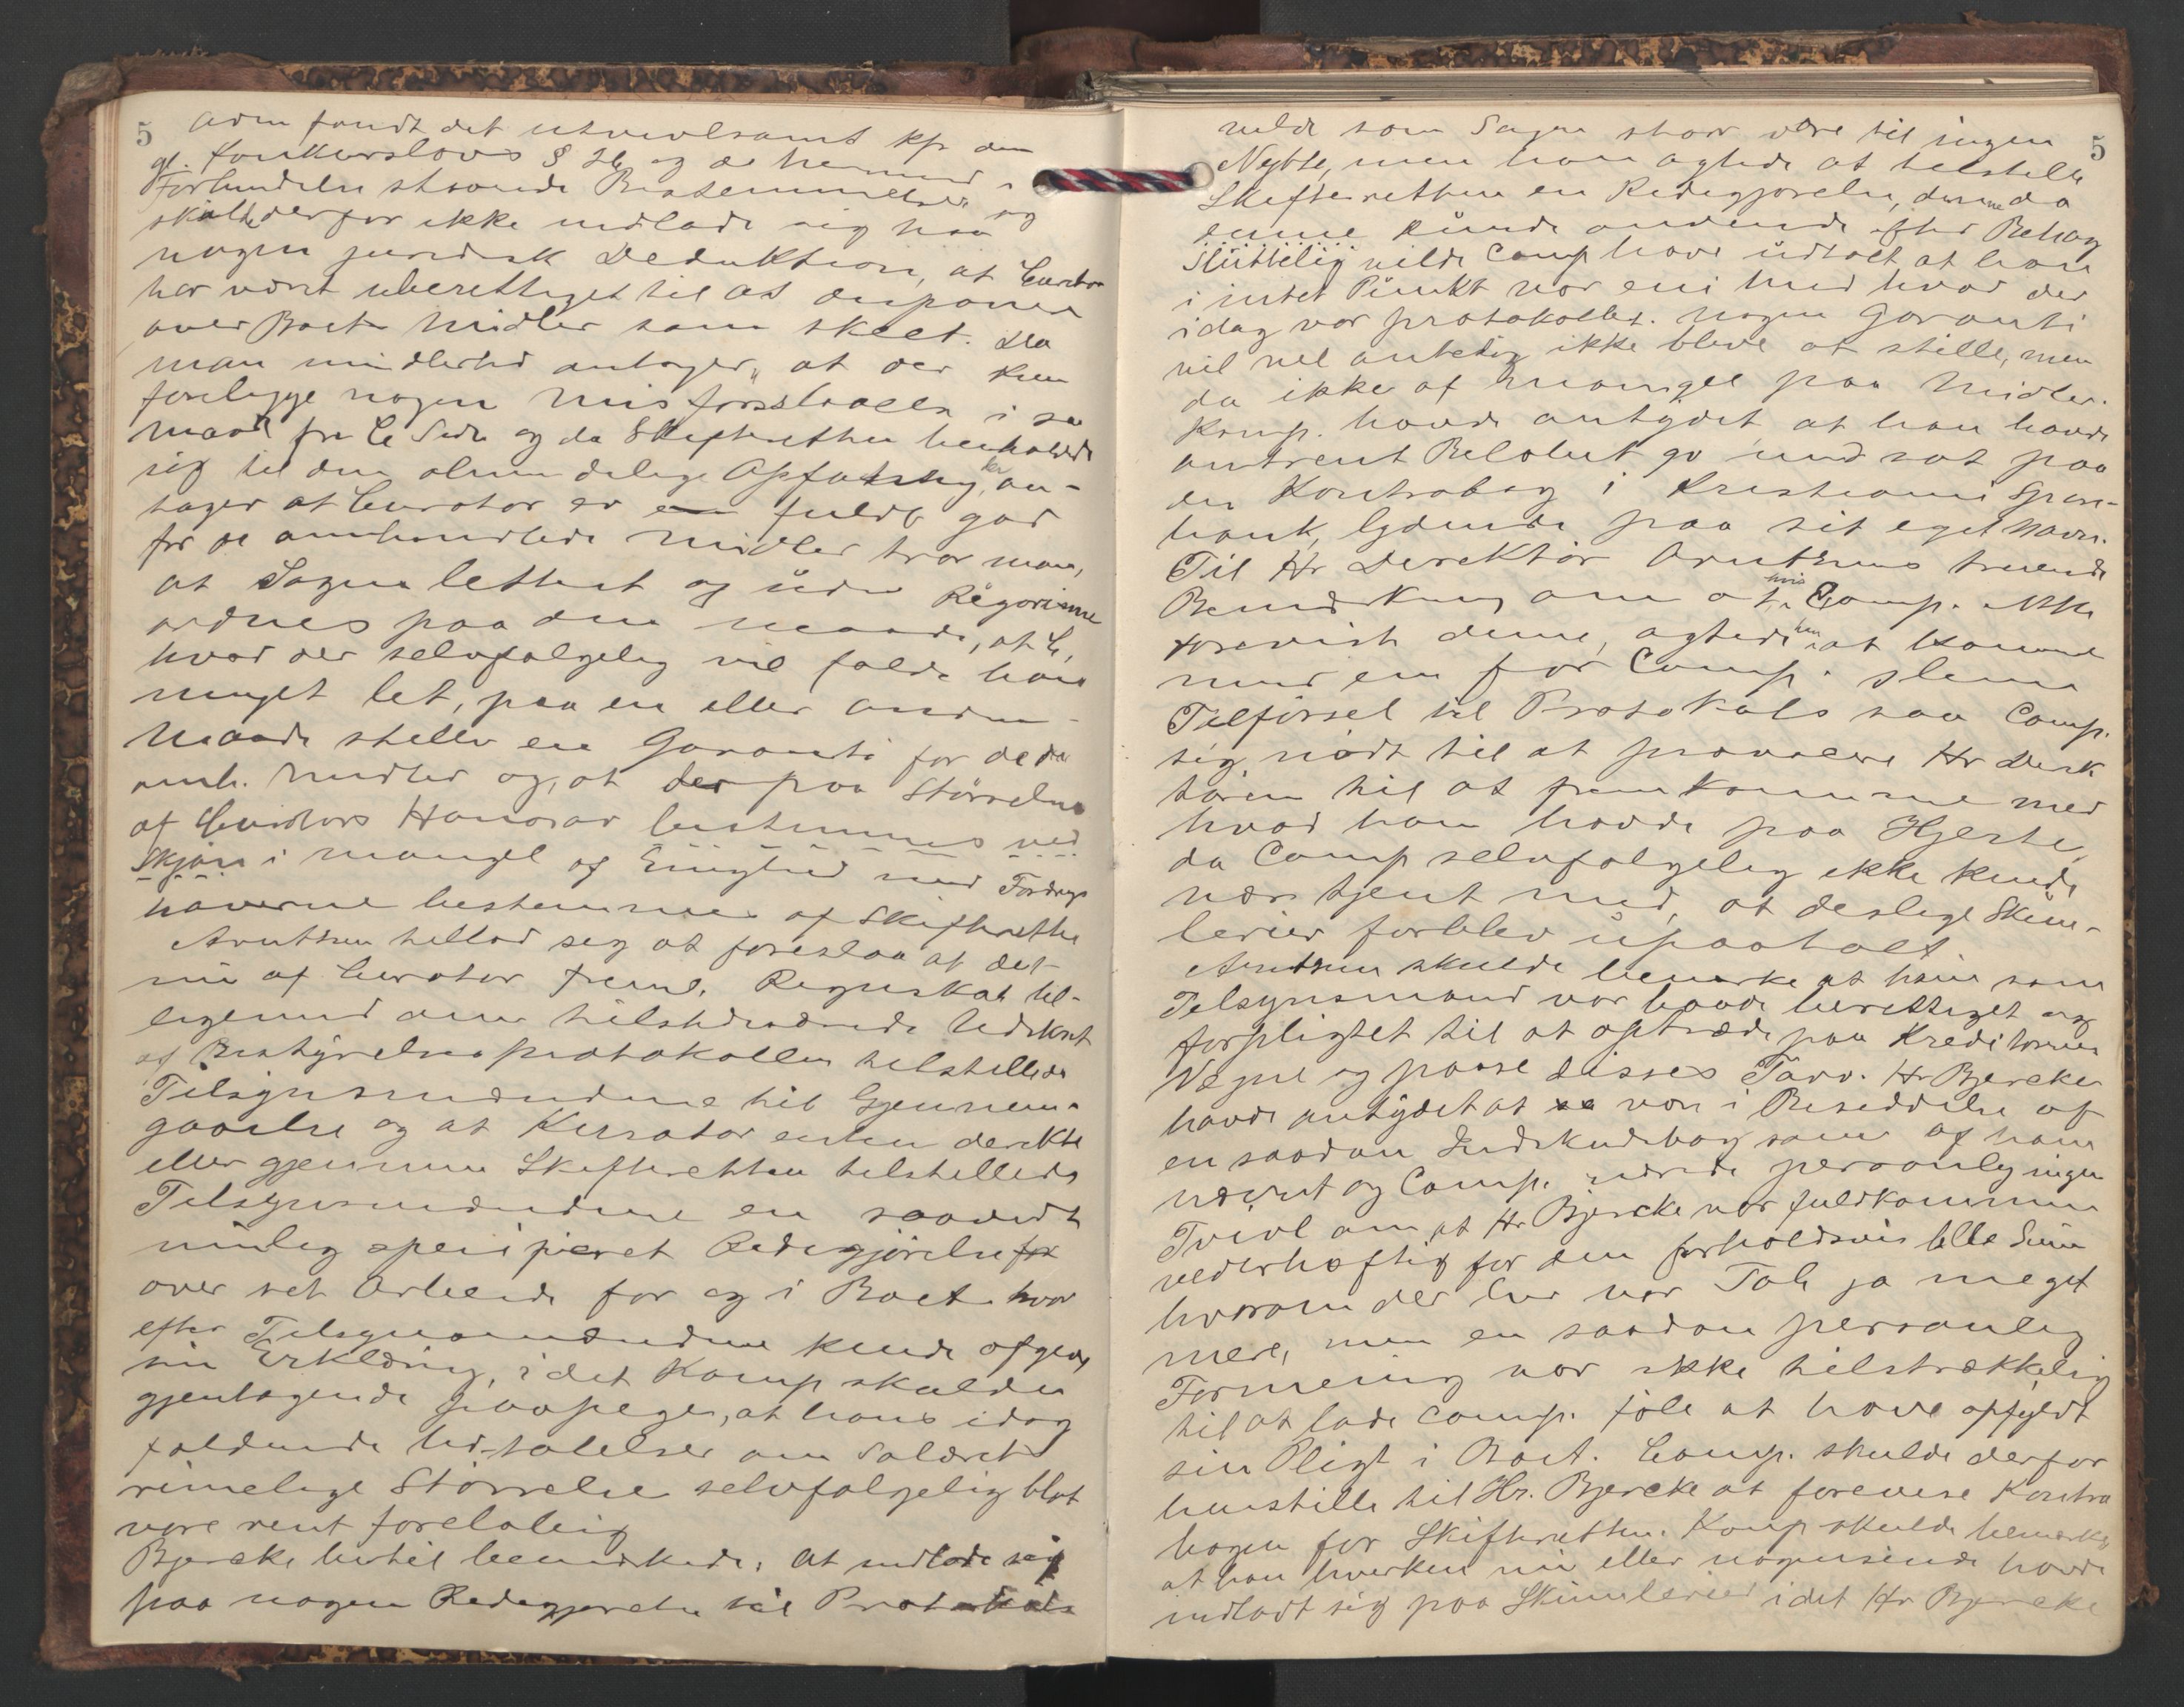 5
Adm fandt det utvivlsomt kfr den
gl. Konkurslovs § 26 og de hermed i
Forbindelse staaende Bestemmelser og
skulde derfor ikke indlade sig paa
nogen juridisk Deduktion, at Curator
har været uberettiget til at disponere
over Boets Midler som skeet. Da
man imidlertid antager, at der kun
foreligge nogen Misforstaaelse i saa
Maade fra Cs Side og da Skifteretten henholdt
sig til den almindelige Opfatning, an-
tager at Curator er fuldt god
for de omhandlede Midler tror man,
at Sagen lettest og uden Rigorisme
ordnes paa den Maade, at C,
hvad der selvfølgelig vil falde ham
meget let, paa en eller anden
Maade stiller en Garanti for de
omh. Midler og, at der paa Størrelsen
af Curators Honorar bestemmes ved
Skjøn i Mangel af Enighed med Fordrings
haverne bestemmes af Skifteretten
Arntzen tillod sig at foreslaa at det
nu af Curator freml. Regnskab til-
ligemed om tilstedeværende Udskrift
af Bestyrelsesprotokollen tilstilledes
Tilsynsmændene til Gjennem-
gaaelse og at Kurator enten direkte
eller gjennem Skifteretten tilstillede
Tilsynsmændene en saavidt
mulig specificeret Redegjørelse
over sit Arbeide for og i Boet hvor
efter Tilsynsmændene kunde afgive
sin Erklæring, idet Komp skulde
gjentagende paapege, at hans idag
faldende Udtalelser om Salærets
rimelige Størrelse selvfølgelig blot
vare rent foreløbig
Bjercke hertil bemærkede: At indlade sig
paa nogen Redegjørelse til Protokols
5
vilde som Sagen staar være til ingen
Nytte, men han agtede at tilstille
Skifteretten en Redegjørelse, denne da
kunde anvende efter Behag
Sluttelig vilde Comp have udtalt at han
i intet Punkt var eni med hvad der
idag var protokollet. Nogen Garanti
vil vel antagelig ikke blive at stille, men
da ikke af Mangel paa Midler.
Komp. havde antydet, at han havde
omtrent Beløbet gv indsat paa
en Kontrabog i Kristiania Spare-
bank, lydende paa sit eget Navn.
Til Hr Direktør Arntzens truende
Bemærkning om at, hvis Comp. ikke
foreviste denne, agtede han at komme
med en for Comp. slem
Tilførsel til Protokols saa Comp.
sig nødt til at provocere Hr Direk
tøren til at fremkomme med
hvad han havde paa Hjerte,
da Comp selvfølgelig ikke kunde
være tjent med, at deslige Skum-
lerier forblev upaatalt.
Arntzen skulde bemærke at han som
Tilsynsmand var baade berettiget og
forpligtet til at optræde paa Kreditorernes
Vegne og paase disses Tarv. Hr Bjercke
havde antydet at være i Besiddelse af
en saadan Indskudsbog som af ham
nævnt og Comp. nærede personlig ingen
Tvivl om, at Hr Bjercke var fuldkommen
vederhæftig for den forholdsvis lille Sum
hvorom der her var Tale ja meget
mere, men en saadan personlig
Formening var ikke tilstrækkelig
til at lade Comp. føle at have opfyldt
sin Pligt i Boet. Comp. skulde derfor
henstille til Hr. Bjercke at forevise Kontra
bogen for Skifteretten. Komp skulde bemærke,
at han hverken nu eller nogensinde havde
indladt sig paa Skumlerier idet Hr Bjercke